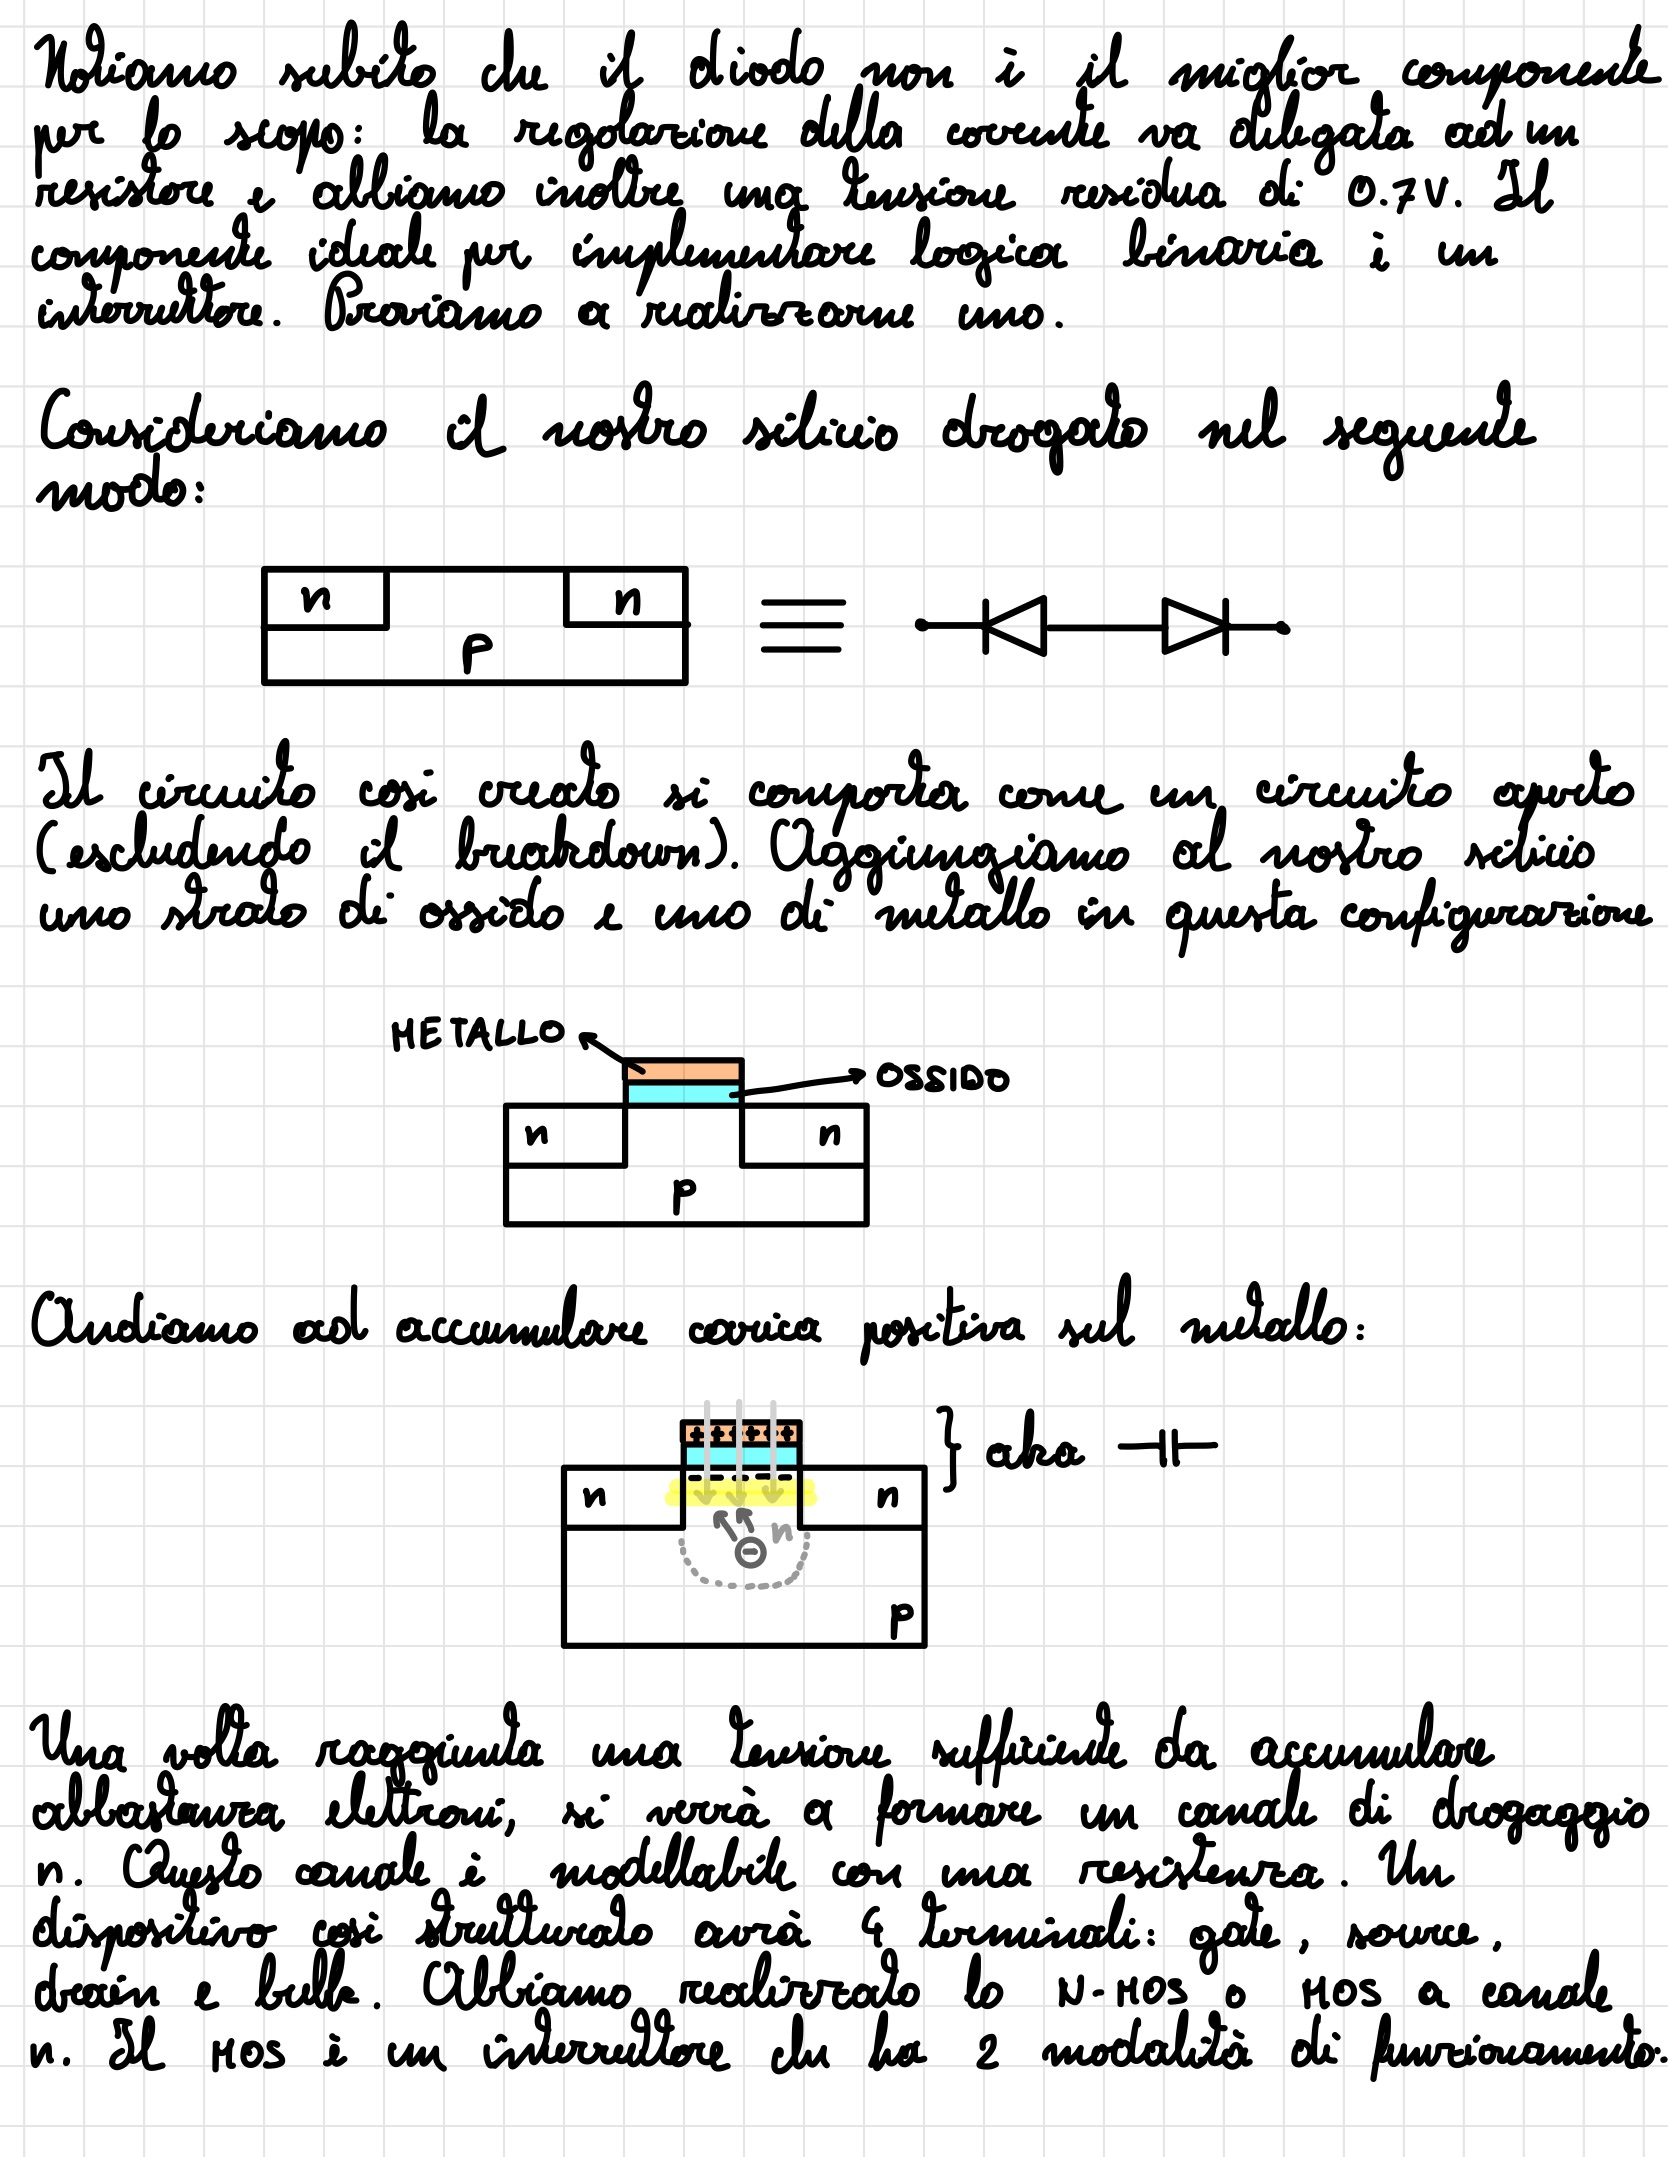 Notiamo subito che il diodo non è il miglior componente
per lo scopo: la regolazione della corrente va delegata ad un
resistore e abbiamo inoltre una tensione residua di 0.7V. Il
componente ideale per implementare logica binaria è un
interruttore. Proviamo a realizzarne uno.
Consideriamo il nostro silicio drogato nel seguente
modo:
n n
p
Il circuito così creato si comporta come un circuito aperto
(escludendo il breakdown). Aggiungiamo al nostro silicio
uno strato di ossido e uno di metallo in questa configurazione
METALLO
OSSIDO
n n
p
Andiamo ad accumulare carica positiva sul metallo:
+ + + + + +
} aka
n n
n
p
Una volta raggiunta una tensione sufficiente da accumulare
abbastanza elettroni, si verrà a formare un canale di drogaggio
n. Questo canale è modellabile con una resistenza. Un
dispositivo così strutturato avrà 4 terminali: gate, source,
drain e bulk. Abbiamo realizzato lo N-MOS o MOS a canale
n. Il MOS è un interruttore che ha 2 modalità di funzionamento: